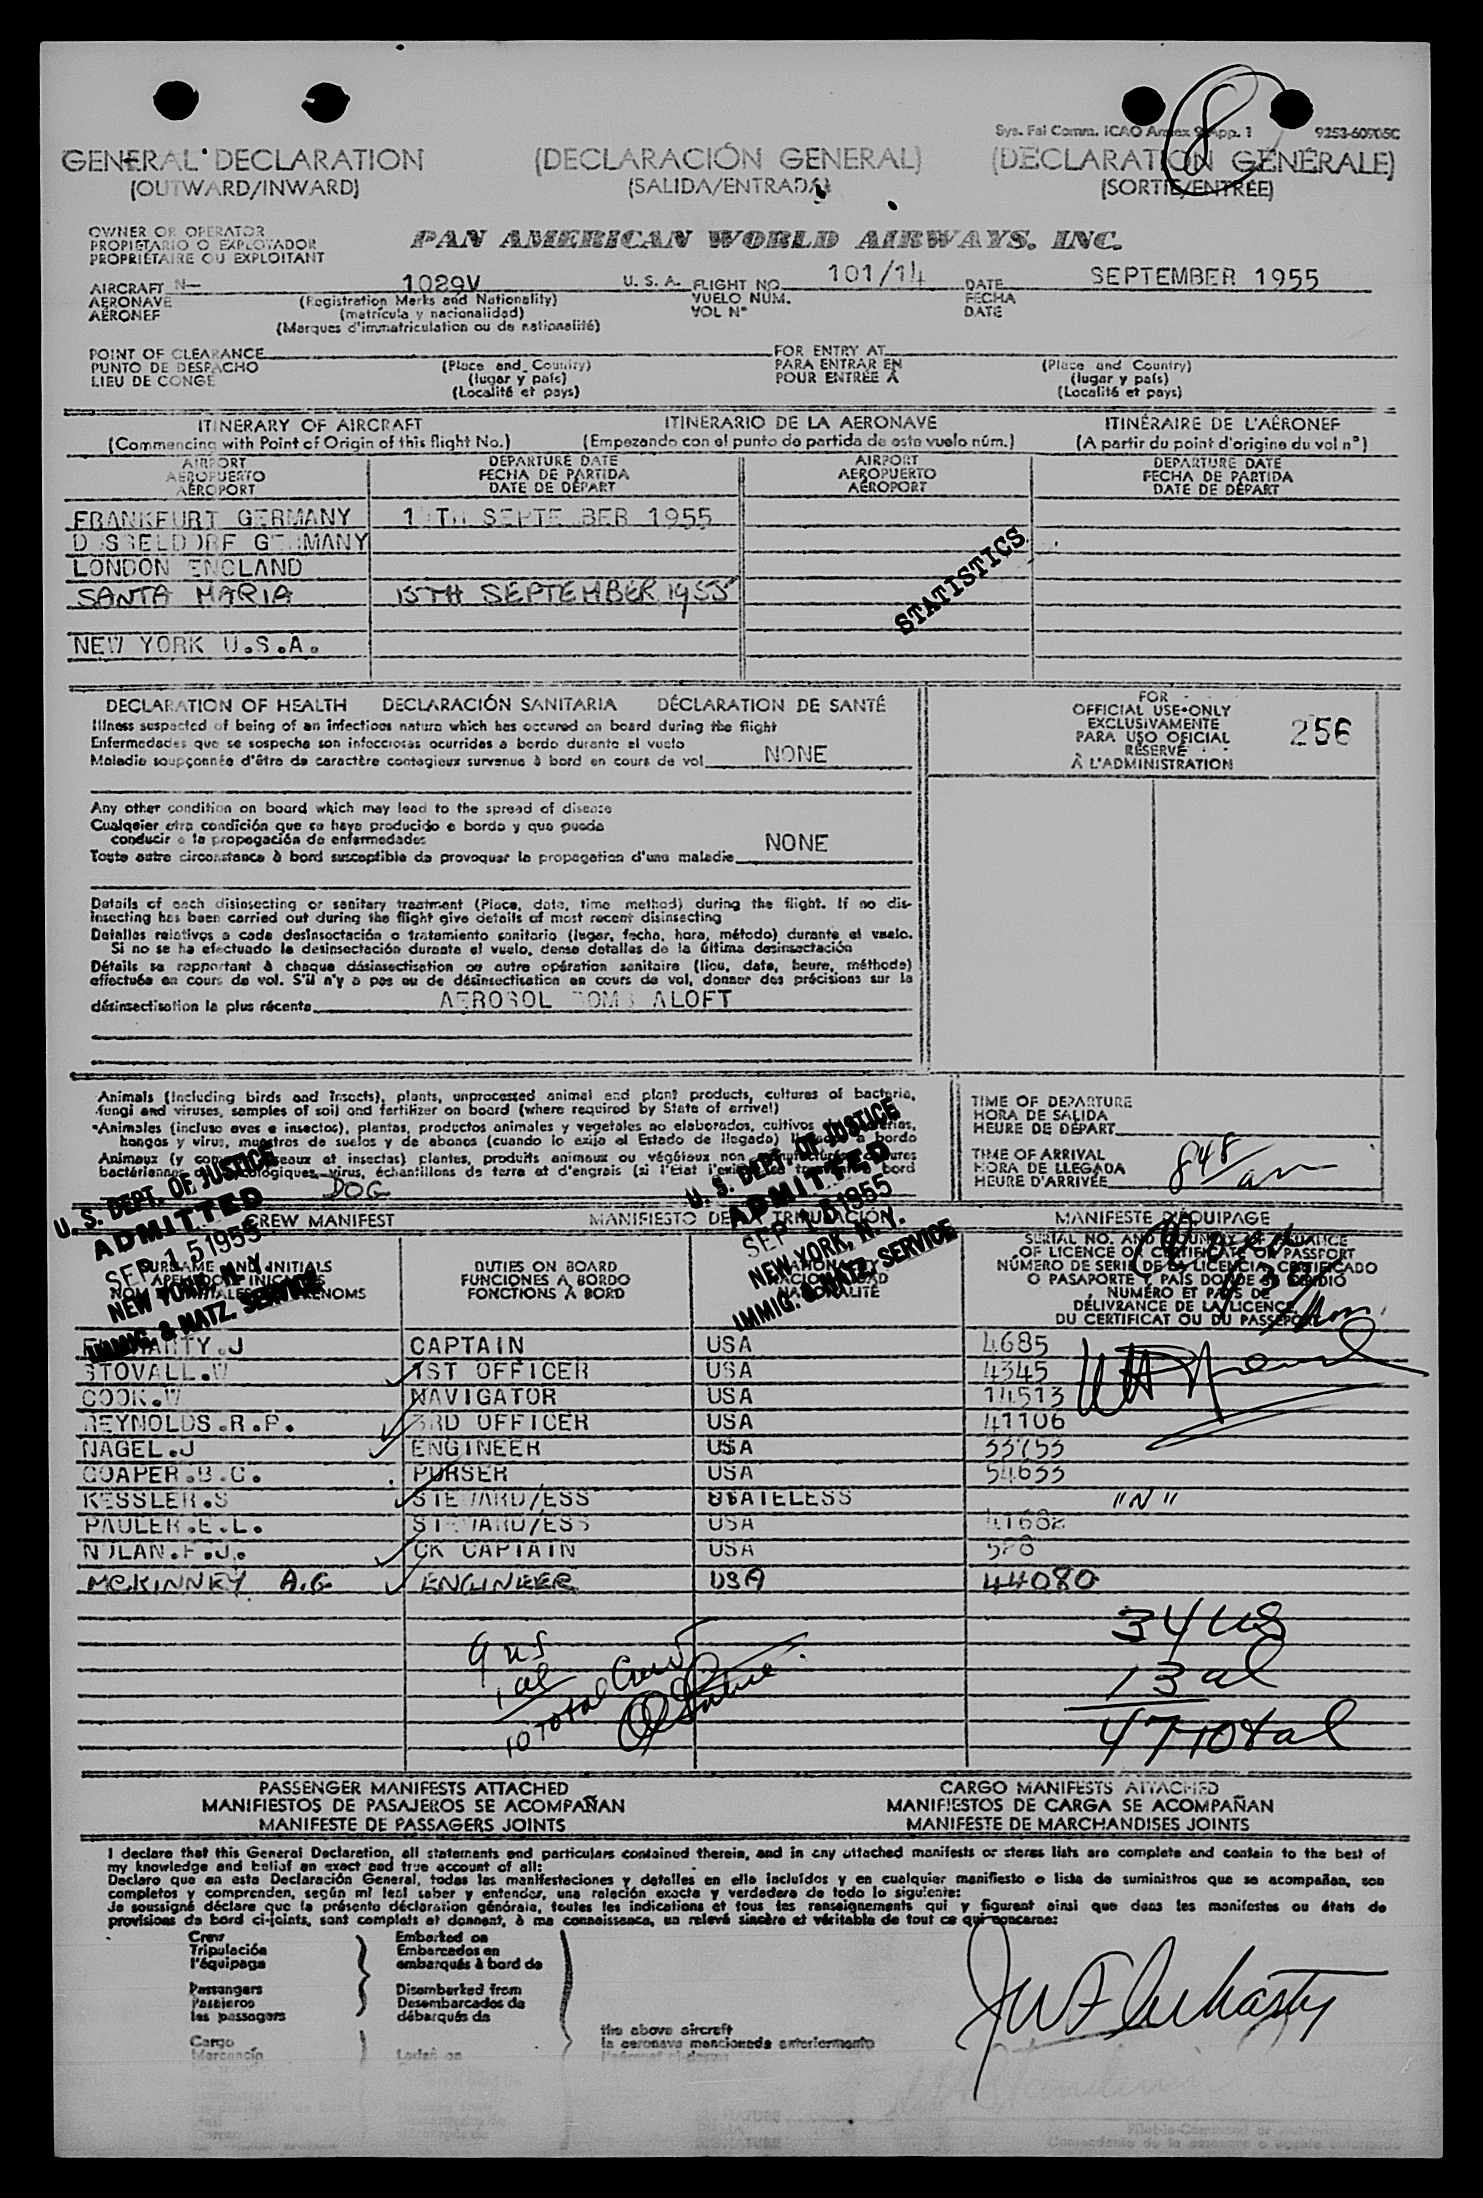 Sys. Fal Comm. ICAO Annex 9 App. 1 9253-60905C
8
GENERAL DECLARATION (DECLARACIÓN GENERAL) (DÉCLARATION GÉNÉRALE)
(OUTWARD/INWARD) (SALIDA/ENTRADA) (SORTIE/ENTRÉE)
OWNER OR OPERATOR
PROPIETARIO O EXPLOTADOR
PROPRIÉTAIRE OU EXPLOITANT
PAN AMERICAN WORLD AIRWAYS, INC.
AIRCRAFT N— 1029V U. S. A. FLIGHT NO. 101/14 DATE SEPTEMBER 1955
AERONAVE (Registration Marks and Nationality) VUELO NUM. FECHA
AÉRONEF (matrícula y nacionalidad) VOL Nº DATE
(Marques d'immatriculation ou de nationalité)
POINT OF CLEARANCE FOR ENTRY AT
PUNTO DE DESPACHO (Place and Country) PARA ENTRAR EN (Place and Country)
LIEU DE CONGÉ (lugar y país) POUR ENTRÉE À (lugar y país)
(Localité et pays) (Localité et pays)
ITINERARY OF AIRCRAFT ITINERARIO DE LA AERONAVE ITINÉRAIRE DE L'AÉRONEF
(Commencing with Point of Origin of this flight No.) (Empezando con el punto de partida de este vuelo núm.) (A partir du point d'origine du vol nº)
AIRPORT DEPARTURE DATE AIRPORT DEPARTURE DATE
AEROPUERTO FECHA DE PARTIDA AEROPUERTO FECHA DE PARTIDA
AÉROPORT DATE DE DÉPART AÉROPORT DATE DE DÉPART
FRANKFURT GERMANY SEPTEMBER 1955
DUSSELDORF GERMANY
LONDON ENGLAND
SANTA MARIA 15TH SEPTEMBER 1955
STATISTICS
NEW YORK U.S.A.
DECLARATION OF HEALTH DECLARACIÓN SANITARIA DÉCLARATION DE SANTÉ
Illness suspected of being of an infectious nature which has occured on board during the flight
Enfermedades que se sospecha son infecciosas ocurridas a bordo durante el vuelo
Maladie soupçonnée d'être de caractère contagieux survenue à bord en cours de vol NONE
FOR
OFFICIAL USE ONLY
EXCLUSIVAMENTE
PARA USO OFICIAL
RESERVÉ
À L'ADMINISTRATION
256
Any other condition on board which may lead to the spread of disease
Cualquier otra condición que se haya producido a bordo y que pueda
conducir a la propagación de enfermedades
Toute autre circonstance à bord susceptible de provoquer la propagation d'une maladie NONE
Details of each disinsecting or sanitary treatment (Place, date, time method) during the flight. If no dis-
insecting has been carried out during the flight give details of most recent disinsecting
Detalles relativos a cada desinsectación o tratamiento sanitario (lugar, fecha, hora, método) durante el vuelo.
Si no se ha efectuado la desinsectación durante el vuelo, dense detalles de la última desinsectación
Détails se rapportant à chaque désinsectisation ou autre opération sanitaire (lieu, date, heure, méthode)
effectuée en cours de vol. S'il n'y a pas eu de désinsectisation en cours de vol, donner des précisions sur la
désinsectisation la plus récente AEROSOL BOMB ALOFT
Animals (including birds and insects), plants, unprocessed animal and plant products, cultures of bacteria,
fungi and viruses, samples of soil and fertilizer on board (where required by State of arrival)
Animales (incluso aves e insectos), plantas, productos animales y vegetales no elaborados, cultivos
hongos y virus, muestras de suelos y de abonos (cuando lo exija el Estado de llegada) a bordo
Animaux (y compris oiseaux et insectes) plantes, produits animaux ou végétaux non
virus, échantillons de terre et d'engrais (si l'État bord
DOG
TIME OF DEPARTURE
HORA DE SALIDA
HEURE DE DÉPART
TIME OF ARRIVAL
HORA DE LLEGADA
HEURE D'ARRIVÉE 848 am
U. S. DEPT. OF JUSTICE
ADMITTED
SEP 15 1955
NEW YORK, N. Y.
IMMIG. & NATZ. SERVICE
U. S. DEPT. OF JUSTICE
ADMITTED
SEP 15 1955
NEW YORK, N. Y.
IMMIG. & NATZ. SERVICE
CREW MANIFEST MANIFIESTO DE LA TRIPULACIÓN MANIFESTE D'ÉQUIPAGE
SURNAME AND INITIALS DUTIES ON BOARD NATIONALITY
FUNCIONES A BORDO
FONCTIONS À BORD
SERIAL NO. AND COUNTRY OF ISSUANCE
OF LICENCE OR CERTIFICATE OR PASSPORT
NÚMERO DE SERIE DE LA LICENCIA, CERTIFICADO
O PASAPORTE Y PAÍS DONDE SE EXPIDIÓ
NUMÉRO ET PAYS DE
DÉLIVRANCE DE LA LICENCE,
DU CERTIFICAT OU DU PASSEPORT
CAPTAIN USA 4685
STOVALL.W 1ST OFFICER USA 4345
COOK.W NAVIGATOR USA 14513
REYNOLDS.R.P. 3RD OFFICER USA 41106
NAGEL.J ENGINEER USA 33753
COAPER.B.C. PURSER USA 54633
KESSLER.S STEWARD/ESS STATELESS "N"
PAULER.E.L. STEWARD/ESS USA
NOLAN.F.J. CK CAPTAIN USA
MCKINNEY A.G ENGINEER USA 44080
9 us
1 al
10 Total Crew
34 us
13 al
47 Total
PASSENGER MANIFESTS ATTACHED CARGO MANIFESTS ATTACHED
MANIFIESTOS DE PASAJEROS SE ACOMPAÑAN MANIFIESTOS DE CARGA SE ACOMPAÑAN
MANIFESTE DE PASSAGERS JOINTS MANIFESTE DE MARCHANDISES JOINTS
I declare that this General Declaration, all statements and particulars contained therein, and in any attached manifests or stores lists are complete and contain to the best of
my knowledge and belief an exact and true account of all:
Declaro que en esta Declaración General, todas las manifestaciones y detalles en ella incluídos y en cualquier manifiesto o lista de suministros que se acompañan, son
completos y comprenden, según mi leal saber y entender, una relación exacta y verdadera de todo lo siguiente:
Je soussigné déclare que la présente déclaration générale, toutes les indications et tous les renseignements qui y figurent ainsi que dans les manifestes ou états de
provisions de bord ci-joints, sont complets et donnent, à ma connaissance, un relevé sincère et véritable de tout ce qui concerne:
Crew Embarked on
Tripulación Embarcados en
l'équipage embarqués à bord de
Passengers Disembarked from
Pasajeros Desembarcados de
les passagers débarqués de
the above aircraft
Cargo la aeronave mencionada anteriormente
Mercancía Laden on